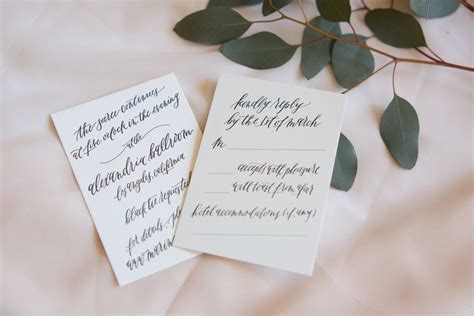 the soree continues
at five o'clock in the evening
at the
alexandria ballroom
los angeles, california
black tie requested
for details, please
www.
kindly reply
by the 1st of march
m
accepts with pleasure
will toast from afar
hotel accommodations (if any)